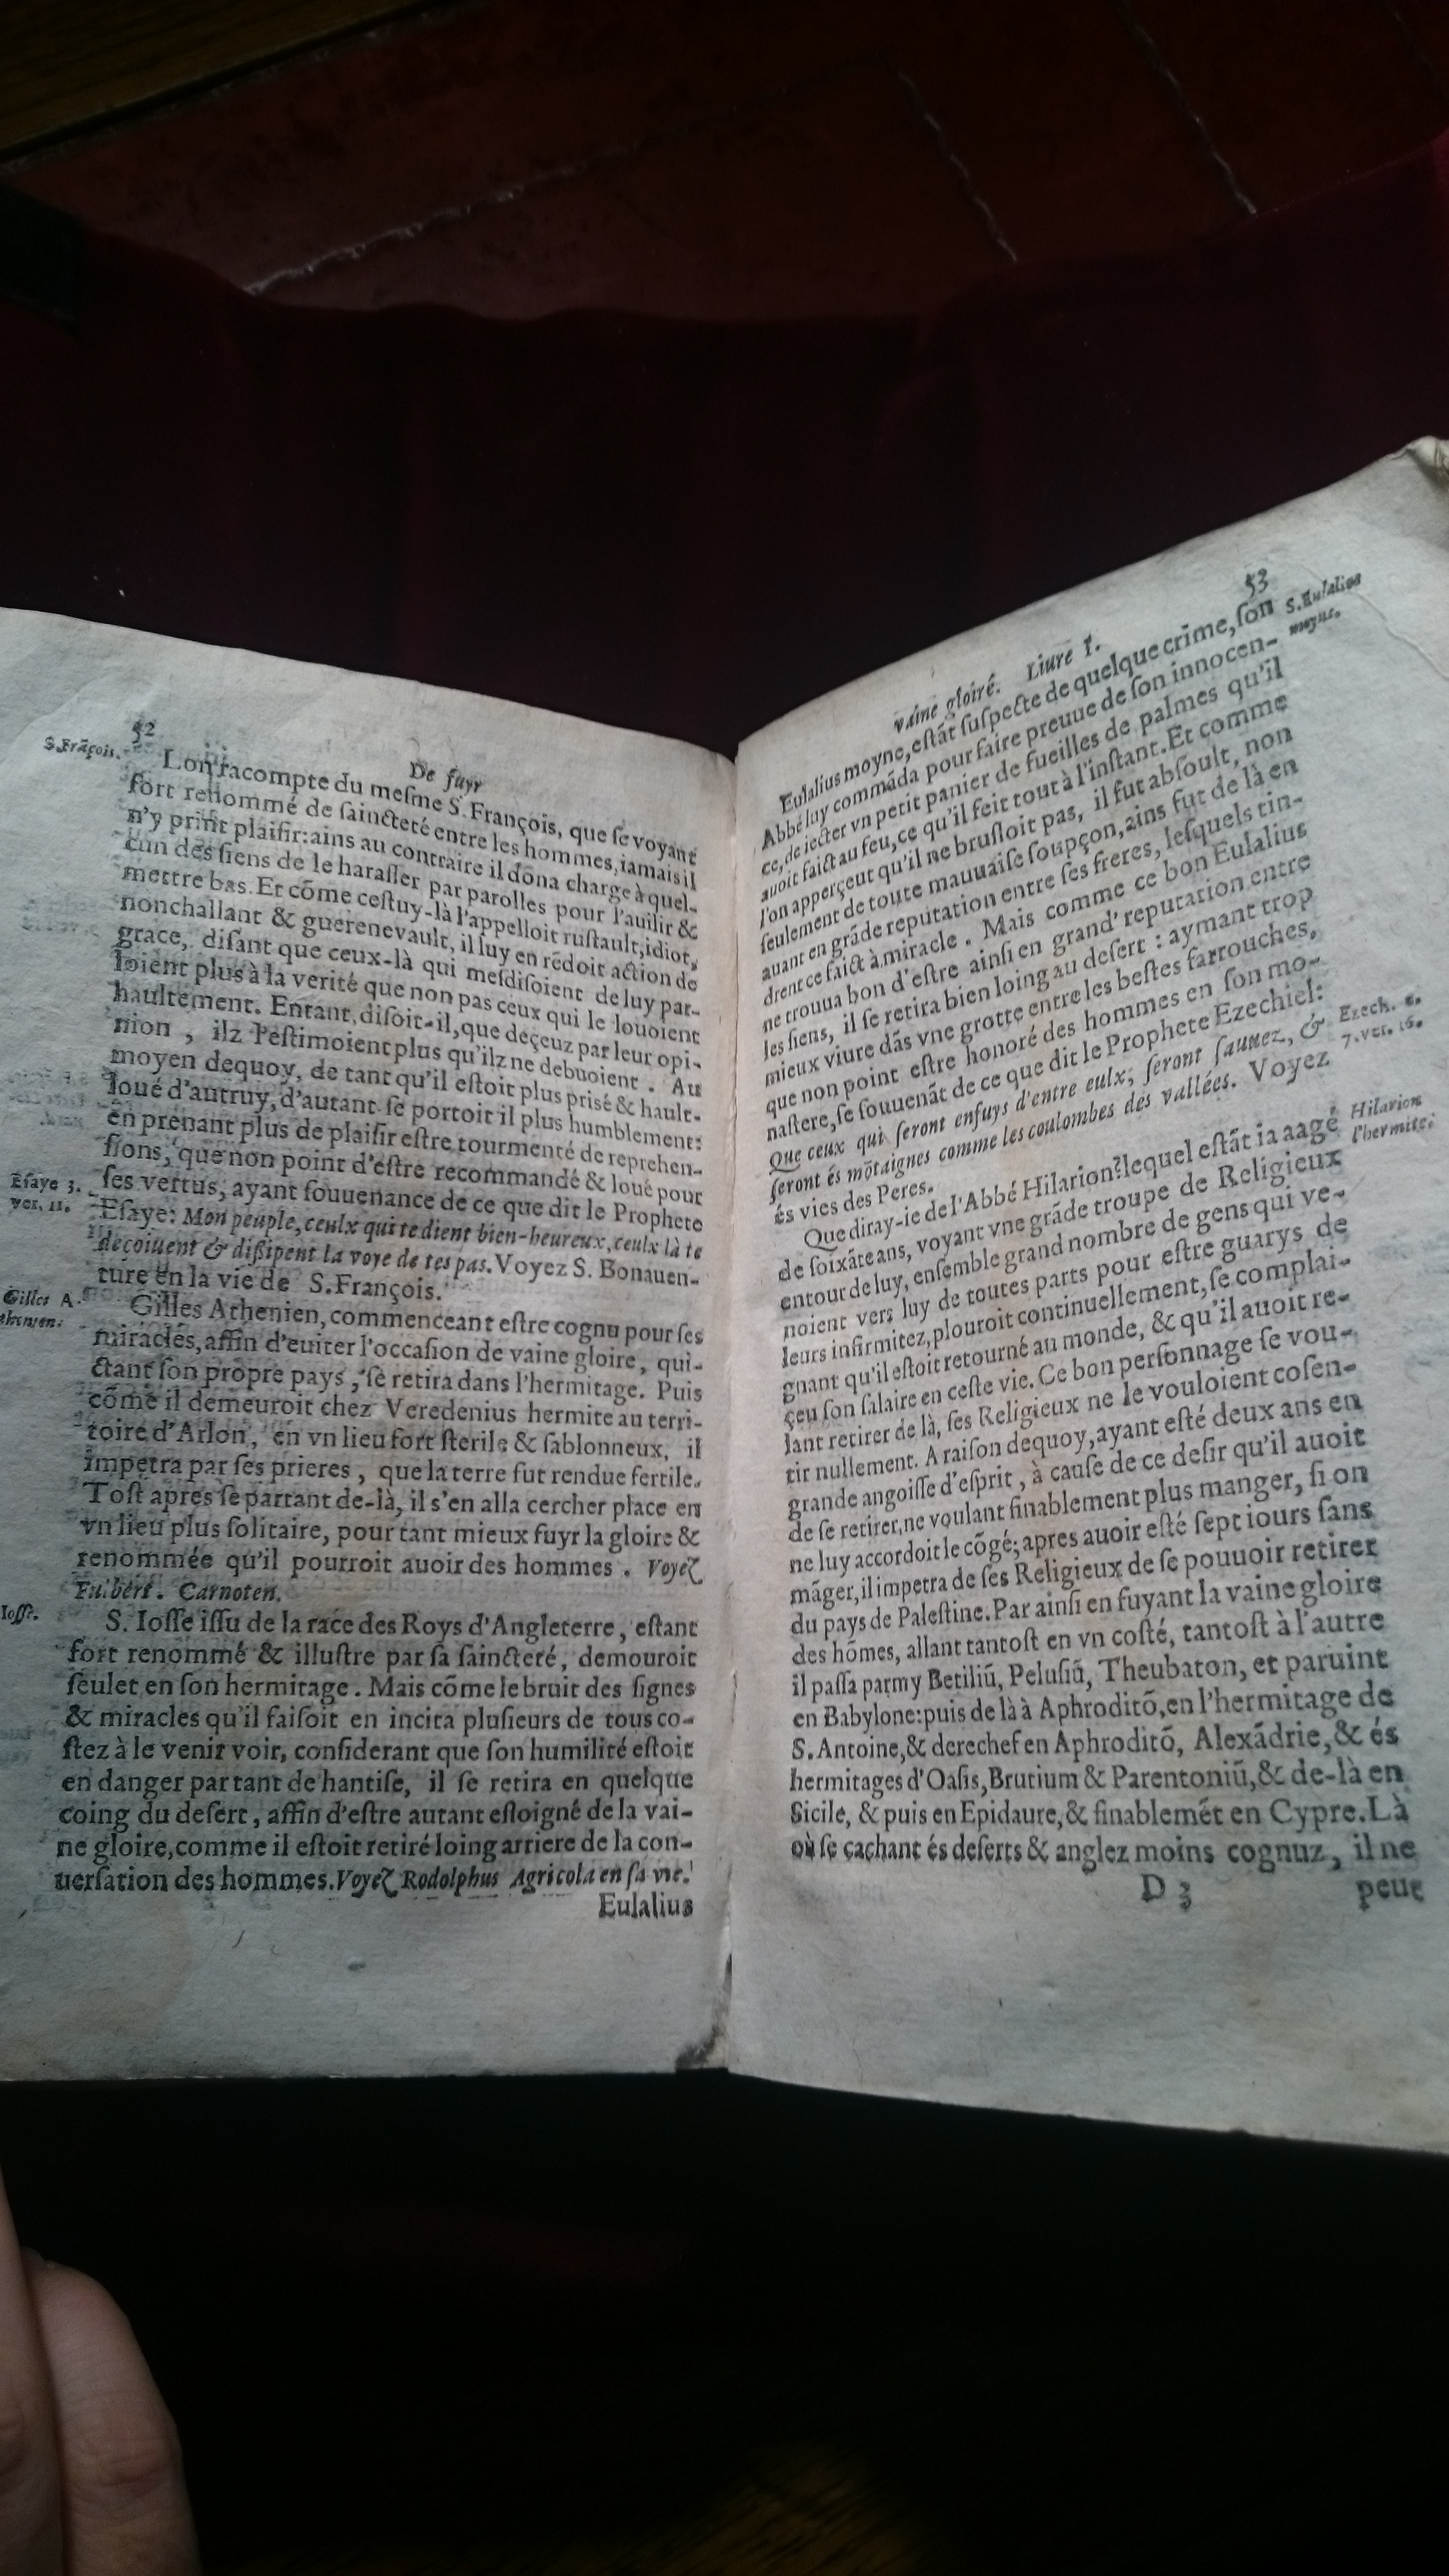 52
De fuyr
S. Frãçois.
Lon racompte du meſme S. François, que ſe voyant
fort renommé de ſaincteté entre les hommes, iamais il
n'y print plaiſir: ains au contraire il dõna charge à quel-
cun des ſiens de le haraſſer par parolles pour l'auilir &
mettre bas. Et cõme ceſtuy-là l'appelloit ruſtault, idiot,
nonchallant & guerenevault, il luy en rēdoit action de
grace, diſant que ceux-là qui meſdiſoient de luy par-
loient plus à la verité que non pas ceux qui le louoient
haultement. Entant, diſoit-il, que deçeuz par leur opi-
nion, ilz l'eſtimoient plus qu'ilz ne debuoient. Au
moyen dequoy, de tant qu'il eſtoit plus priſé & hault-
loué d'autruy, d'autant ſe portoit il plus humblement:
en prenant plus de plaiſir eſtre tourmenté de reprehen-
ſions, que non point d'eſtre recommandé & loué pour
ſes vertus, ayant ſouuenance de ce que dit le Prophete
Eſaye 3.
ver. 11.
Eſaye: Mon peuple, ceulx qui te dient bien-heureux, ceulx là te
decoiuent & diſsipent la voye de tes pas. Voyez S. Bonauen-
ture en la vie de S. François.
Gilles A-
thenien.
Gilles Athenien, commenceant eſtre cognu pour ſes
miracles, affin d'euiter l'occaſion de vaine gloire, qui-
ctant ſon propre pays, ſe retira dans l'hermitage. Puis
cõme il demeuroit chez Veredenius hermite au terri-
toire d'Arlon, en vn lieu fort ſterile & ſablonneux, il
impetra par ſes prieres, que la terre fut rendue fertile.
Toſt apres ſe partant de-là, il s'en alla cercher place en
vn lieu plus ſolitaire, pour tant mieux fuyr la gloire &
renommée qu'il pourroit auoir des hommes. Voyez
Fulbert. Carnoten.
Ioſſe.
S. Ioſſe iſſu de la race des Roys d'Angleterre, eſtant
fort renommé & illuſtre par ſa ſaincteté, demouroit
ſeulet en ſon hermitage. Mais cõme le bruit des ſignes
& miracles qu'il faiſoit en incita pluſieurs de tous co-
ſtez à le venir voir, conſiderant que ſon humilité eſtoit
en danger par tant de hantiſe, il ſe retira en quelque
coing du deſert, affin d'eſtre autant eſloigné de la vai-
ne gloire, comme il eſtoit retiré loing arriere de la con-
uerſation des hommes. Voyez Rodolphus Agricola en ſa vie.
Eulalius
53
vaine gloiré. Liure 1.
S. Eulalius
moyne.
Eulalius moyne, eſtãt ſuſpecte de quelque crime, ſon
Abbé luy commãda pour faire preuue de ſon innocen-
ce, de iecter vn petit panier de fueilles de palmes qu'il
auoit faict au feu, ce qu'il feit tout à l'inſtant. Et comme
l'on apperçeut qu'il ne bruſloit pas, il fut abſoult, non
ſeulement de toute mauuaiſe ſoupçon, ains fut de là en
auant en grãde reputation entre ſes freres, leſquels tin-
drent ce faict à miracle. Mais comme ce bon Eulalius
ne trouua bon d'eſtre ainſi en grand' reputation entre
les ſiens, il ſe retira bien loing au deſert: aymant trop
mieux viure dãs vne grotte entre les beſtes farrouches,
que non point eſtre honoré des hommes en ſon mo-
naſtere, ſe ſouuenãt de ce que dit le Prophete Ezechiel:
Ezech. c.
7. ver. 16.
Que ceux qui ſeront enfuys d'entre eulx, ſeront ſauuez, &
ſeront és mõtaignes comme les coulombes des vallées. Voyez
és vies des Peres.
Hilarion
l'hermite.
Que diray-ie de l'Abbé Hilarion? lequel eſtãt ia aagé
de ſoixãte ans, voyant vne grãde troupe de Religieux
entour de luy, enſemble grand nombre de gens qui ve-
noient vers luy de toutes parts pour eſtre guarys de
leurs infirmitez, plouroit continuellement, ſe complai-
gnant qu'il eſtoit retourné au monde, & qu'il auoit re-
çeu ſon ſalaire en ceſte vie. Ce bon perſonnage ſe vou-
lant retirer de là, ſes Religieux ne le vouloient coſen-
tir nullement. A raiſon dequoy, ayant eſté deux ans en
grande angoiſſe d'eſprit, à cauſe de ce deſir qu'il auoit
de ſe retirer, ne voulant finablement plus manger, ſi on
ne luy accordoit le cõgé; apres auoir eſté ſept iours ſans
mãger, il impetra de ſes Religieux de ſe pouuoir retirer
du pays de Paleſtine. Par ainſi en fuyant la vaine gloire
des hõmes, allant tantoſt en vn coſté, tantoſt à l'autre
il paſſa parmy Betiliũ, Peluſiũ, Theubaton, et paruint
en Babylone: puis de là à Aphroditõ, en l'hermitage de
S. Antoine, & derechef en Aphroditõ, Alexãdrie, & és
hermitages d'Oaſis, Brutium & Parentoniũ, & de-là en
Sicile, & puis en Epidaure, & finablemẽt en Cypre. Là
où ſe cachant és deſerts & anglez moins cognuz, il ne
D 3
peut